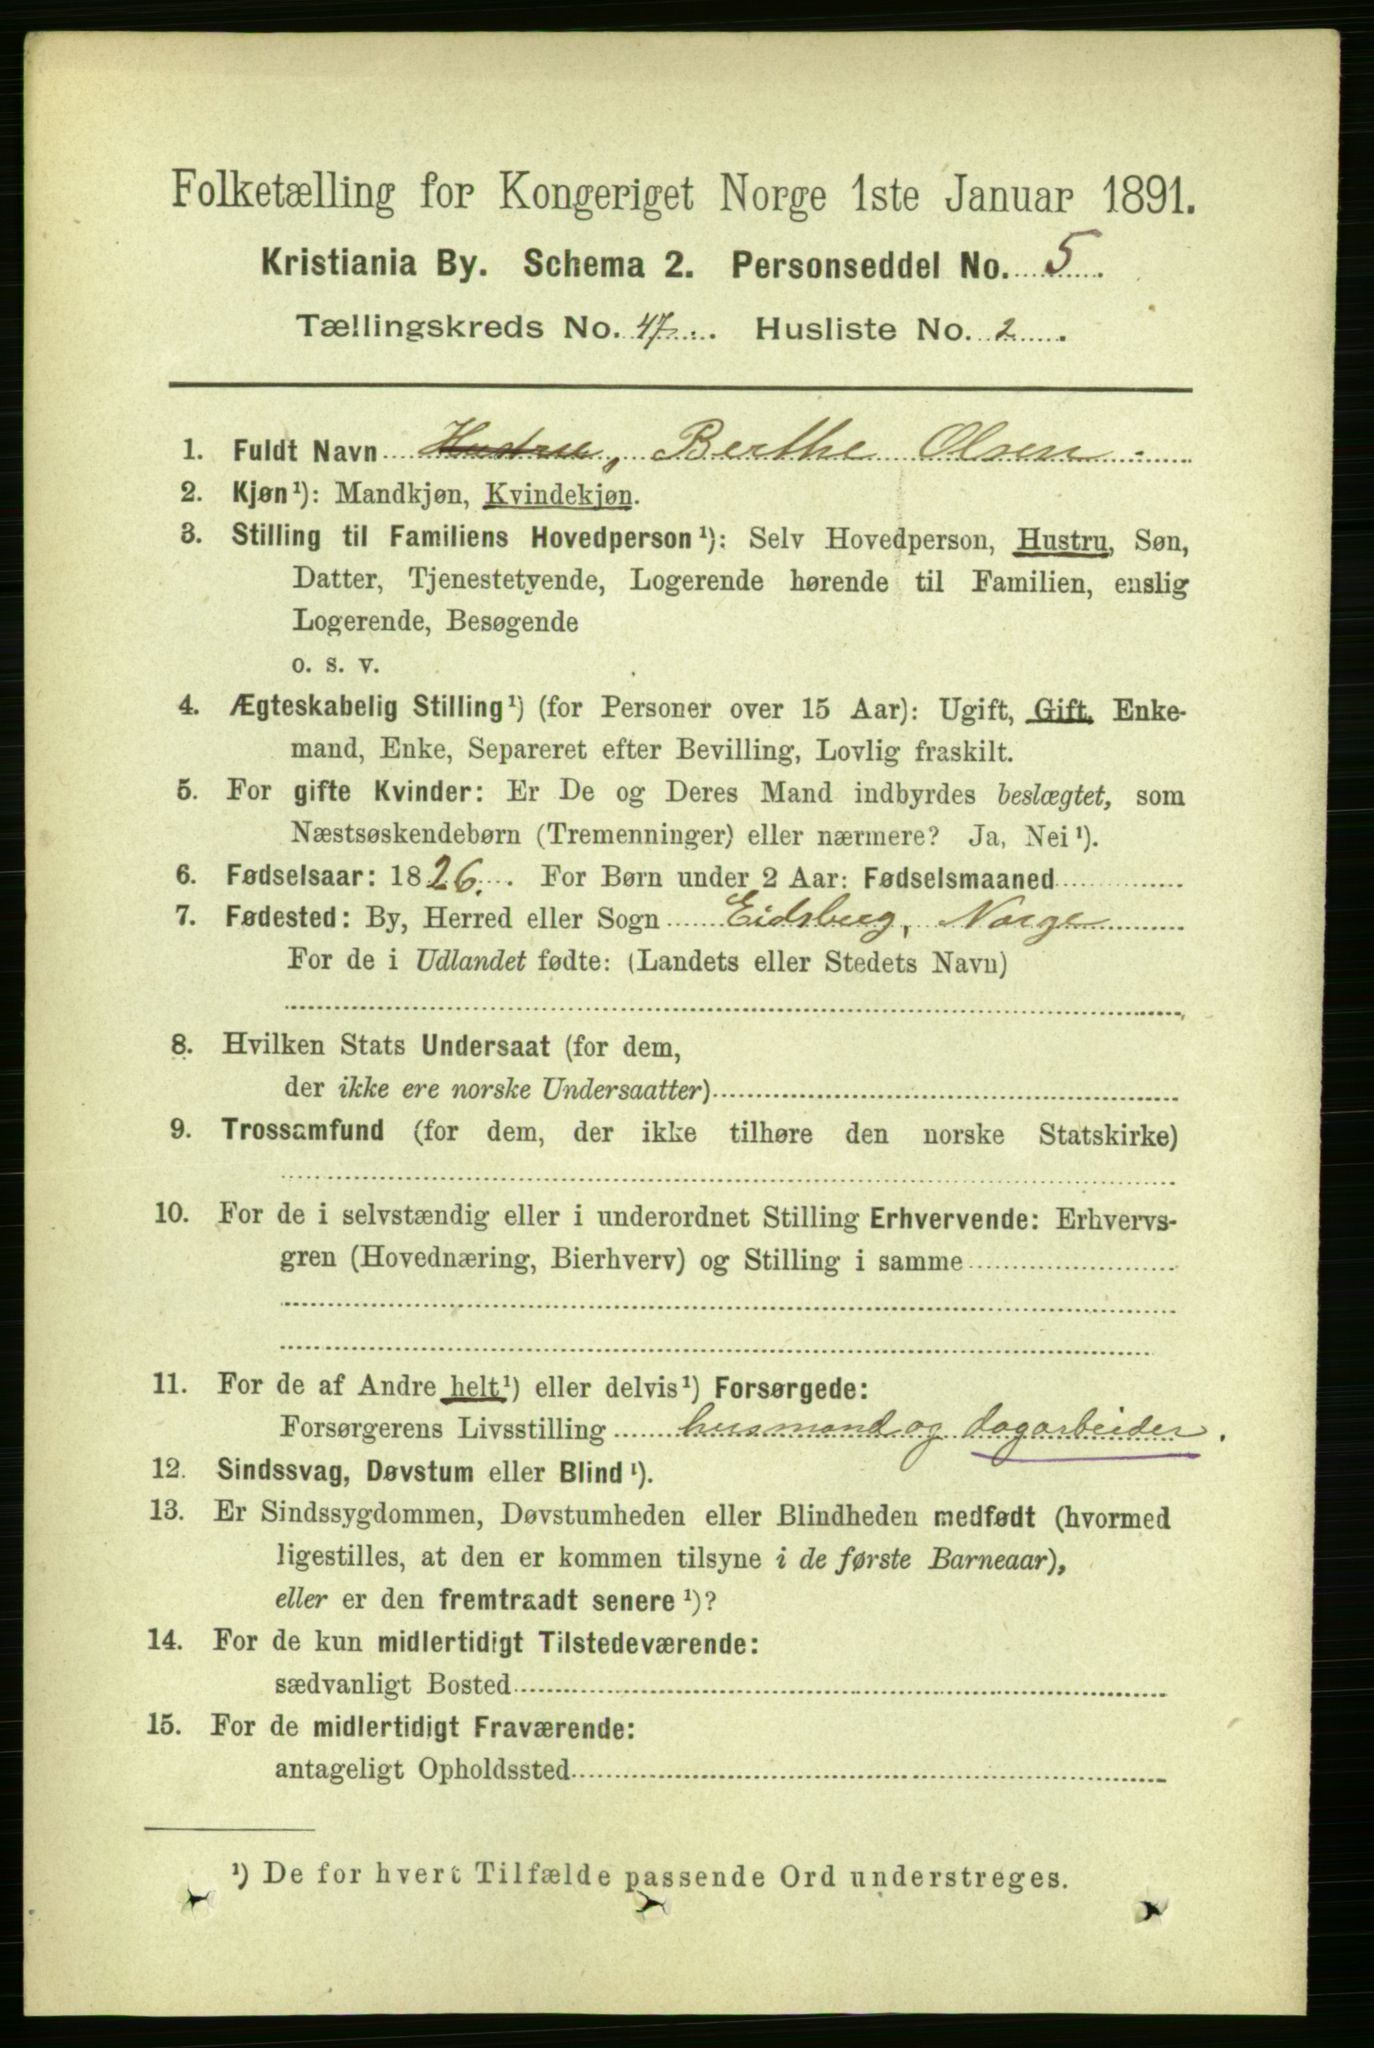 Folketælling for Kongeriget Norge 1ste Januar 1891.
Kristiania By. Schema 2. Personseddel No. 5.
Tællingskreds No. 47. Husliste No. 2.
1. Fuldt Navn Hustru, Berthe Olsen.
2. Kjøn¹): Mandkjøn, Kvindekjøn.
3. Stilling til Familiens Hovedperson¹): Selv Hovedperson, Hustru, Søn,
Datter, Tjenestetyende, Logerende hørende til Familien, enslig
Logerende, Besøgende
o. s. v.
4. Ægteskabelig Stilling¹) (for Personer over 15 Aar): Ugift, Gift, Enke-
mand, Enke, Separeret efter Bevilling, Lovlig fraskilt.
5. For gifte Kvinder: Er De og Deres Mand indbyrdes beslægtet, som
Næstsøskendebørn (Tremenninger) eller nærmere? Ja, Nei¹).
6. Fødselsaar: 1826. For Børn under 2 Aar: Fødselsmaaned
7. Fødested: By, Herred eller Sogn Eidsberg, Norge
For de i Udlandet fødte: (Landets eller Stedets Navn)
8. Hvilken Stats Undersaat (for dem,
der ikke ere norske Undersaatter)
9. Trossamfund (for dem, der ikke tilhøre den norske Statskirke)
10. For de i selvstændig eller i underordnet Stilling Erhvervende: Erhvervs-
gren (Hovednæring, Bierhverv) og Stilling i samme
11. For de af Andre helt¹) eller delvis¹) Forsørgede:
Forsørgerens Livsstilling husmand og dagarbeider.
12. Sindssvag, Døvstum eller Blind¹).
13. Er Sindssygdommen, Døvstumheden eller Blindheden medfødt (hvormed
ligestilles, at den er kommen tilsyne i de første Barneaar),
eller er den fremtraadt senere¹)?
14. For de kun midlertidigt Tilstedeværende:
sædvanligt Bosted
15. For de midlertidigt Fraværende:
antageligt Opholdssted
¹) De for hvert Tilfælde passende Ord understreges.